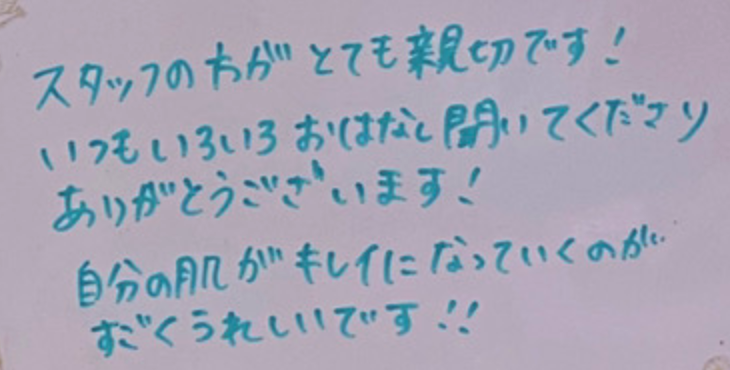 スタッフの方がとても親切です!
いつもいろいろおはなし聞いてくださり
ありがとうございます!
自分の肌がキレイになっていくのが
すごくうれしいです!!